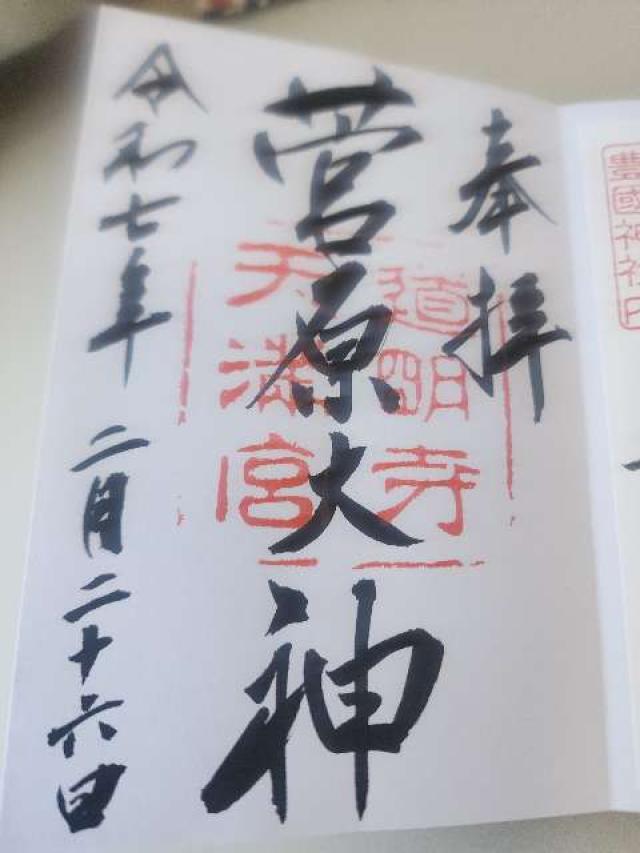 豊國神社印
奉拝
道明寺
天満宮
菅原大神
令和七年 二月二十六日